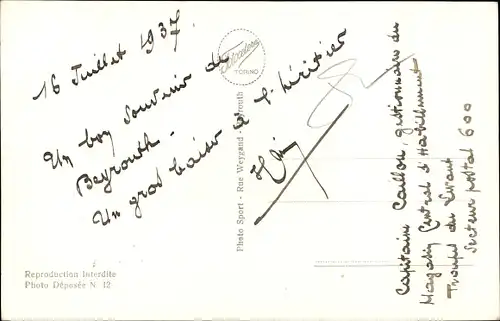 16 Juillet 1937.
Un bon souvenir de
Beyrouth -
Un gros baiser à
TORINO
Photo Sport - Rue Weygand - Beyrouth
Reproduction Interdite
Photo Déposée N 12
Capitaine Caillou, gestionnaire du
Magasin Central d'Habillement
Troupes du Levant
Secteur postal 600